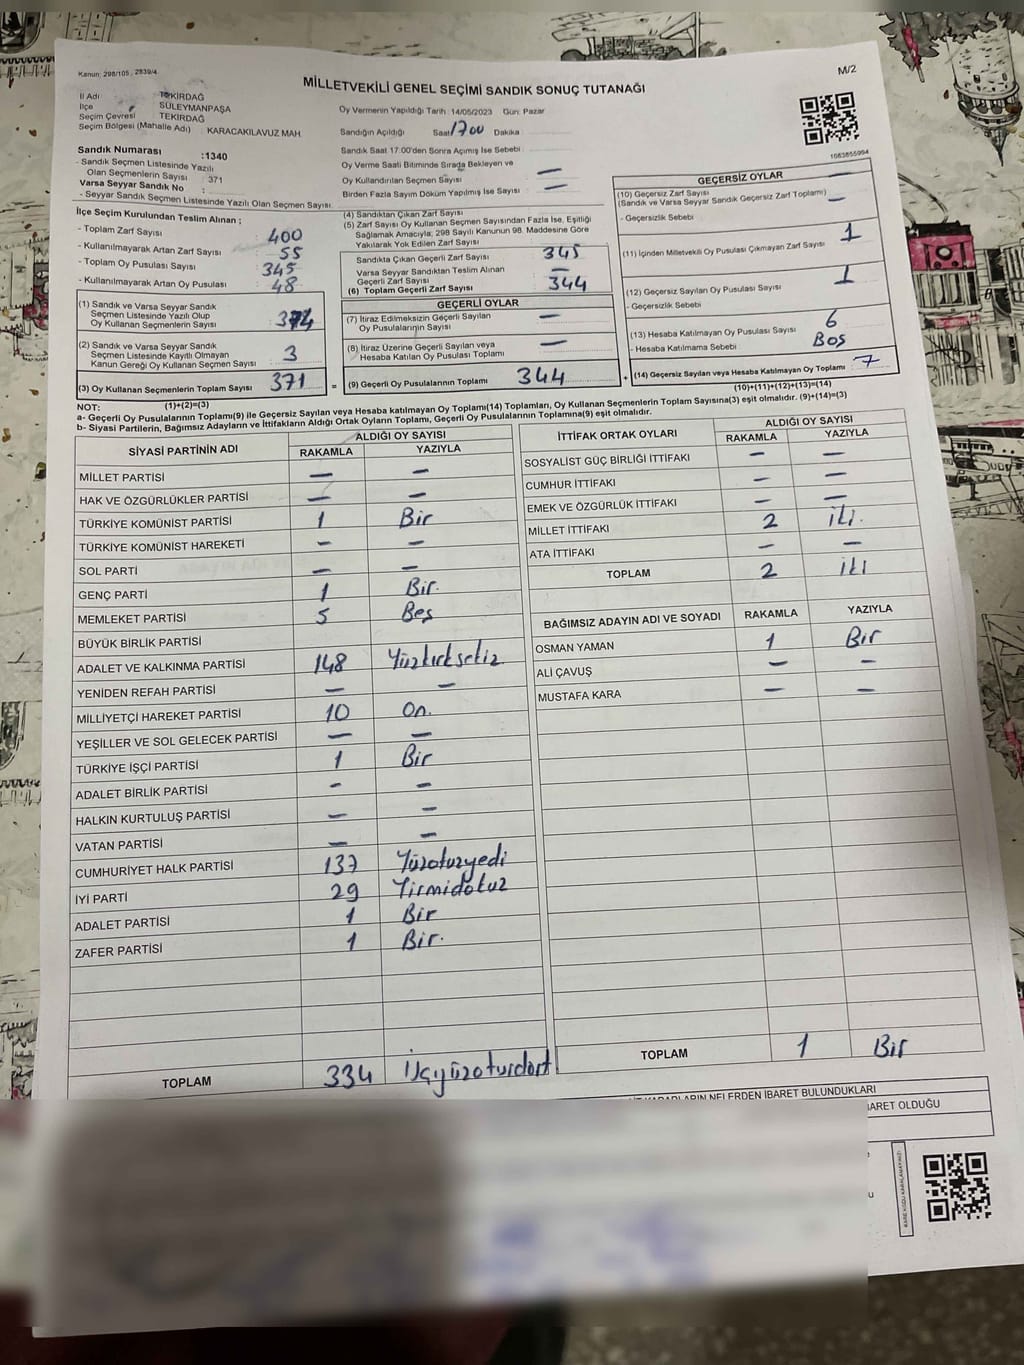 Kanun: 298/105, 2839/4
M/2
MİLLETVEKİLİ GENEL SEÇİMİ SANDIK SONUÇ TUTANAĞI
İl Adı : TEKİRDAĞ
İlçe : SÜLEYMANPAŞA
Seçim Çevresi : TEKİRDAĞ
Seçim Bölgesi (Mahalle Adı) : KARACAKILAVUZ MAH.
Sandık Numarası :1340
- Sandık Seçmen Listesinde Yazılı
Olan Seçmenlerin Sayısı : 371
Varsa Seyyar Sandık No :
- Seyyar Sandık Seçmen Listesinde Yazılı Olan Seçmen Sayısı:
Oy Vermenin Yapıldığı Tarih : 14/05/2023 Gün: Pazar
Sandığın Açıldığı Saat 1700 Dakika
Sandık Saat 17:00'den Sonra Açımış İse Sebebi :
Oy Verme Saati Bitiminde Sırada Bekleyen ve
Oy Kullandırılan Seçmen Sayısı : —
Birden Fazla Sayım Döküm Yapılmış İse Sayısı : —
1063855994
İlçe Seçim Kurulundan Teslim Alınan ;
- Toplam Zarf Sayısı : 400
- Kullanılmayarak Artan Zarf Sayısı : 55
- Toplam Oy Pusulası Sayısı : 345
- Kullanılmayarak Artan Oy Pusulası : 48
(1) Sandık ve Varsa Seyyar Sandık
Seçmen Listesinde Yazılı Olup
Oy Kullanan Seçmenlerin Sayısı :
(2) Sandık ve Varsa Seyyar Sandık
Seçmen Listesinde Kayıtlı Olmayan
Kanun Gereği Oy Kullanan Seçmen Sayısı : 3
(3) Oy Kullanan Seçmenlerin Toplam Sayısı 371
(1)+(2)=(3)
(4) Sandıktan Çıkan Zarf Sayısı
(5) Zarf Sayısı Oy Kullanan Seçmen Sayısından Fazla İse, Eşitliği
Sağlamak Amacıyla; 298 Sayılı Kanunun 98. Maddesine Göre
Yakılarak Yok Edilen Zarf Sayısı
Sandıkta Çıkan Geçerli Zarf Sayısı 345
Varsa Seyyar Sandıktan Teslim Alınan
Geçerli Zarf Sayısı : —
(6) Toplam Geçerli Zarf Sayısı 344
GEÇERLİ OYLAR
(7) İtiraz Edilmeksizin Geçerli Sayılan
Oy Pusulalarının Sayısı : —
(8) İtiraz Üzerine Geçerli Sayılan veya
Hesaba Katılan Oy Pusulası Toplamı : —
= (9) Geçerli Oy Pusulalarının Toplamı 344 +
GEÇERSİZ OYLAR
(10) Geçersiz Zarf Sayısı
(Sandık ve Varsa Seyyar Sandık Geçersiz Zarf Toplamı) —
- Geçersizlik Sebebi :
(11) İçinden Milletvekili Oy Pusulası Çıkmayan Zarf Sayısı : 1
(12) Geçersiz Sayılan Oy Pusulası Sayısı : 1
- Geçersizlik Sebebi :
(13) Hesaba Katılmayan Oy Pusulası Sayısı : 6
- Hesaba Katılmama Sebebi : Boş
(14) Geçersiz Sayılan veya Hesaba Katılmayan Oy Toplamı : 7
(10)+(11)+(12)+(13)=(14)
NOT:
a- Geçerli Oy Pusulalarının Toplamı(9) ile Geçersiz Sayılan veya Hesaba katılmayan Oy Toplamı(14) Toplamları, Oy Kullanan Seçmenlerin Toplam Sayısına(3) eşit olmalıdır. (9)+(14)=(3)
b- Siyasi Partilerin, Bağımsız Adayların ve İttifakların Aldığı Ortak Oyların Toplamı, Geçerli Oy Pusulalarının Toplamına(9) eşit olmalıdır.
SİYASİ PARTİNİN ADI ALDIĞI OY SAYISI
RAKAMLA YAZIYLA
MİLLET PARTİSİ — —
HAK VE ÖZGÜRLÜKLER PARTİSİ — —
TÜRKİYE KOMÜNİST PARTİSİ 1 Bir
TÜRKİYE KOMÜNİST HAREKETİ — —
SOL PARTİ — —
GENÇ PARTİ 1 Bir.
MEMLEKET PARTİSİ 5 Beş
BÜYÜK BİRLİK PARTİSİ
ADALET VE KALKINMA PARTİSİ 148 Yüzkırksekiz
YENİDEN REFAH PARTİSİ — —
MİLLİYETÇİ HAREKET PARTİSİ 10 On.
YEŞİLLER VE SOL GELECEK PARTİSİ — —
TÜRKİYE İŞÇİ PARTİSİ 1 Bir
ADALET BİRLİK PARTİSİ - —
HALKIN KURTULUŞ PARTİSİ — —
VATAN PARTİSİ — —
CUMHURİYET HALK PARTİSİ 137 Yüzotuzyedi
İYİ PARTİ 29 Yirmidokuz
ADALET PARTİSİ 1 Bir
ZAFER PARTİSİ 1 Bir.
TOPLAM 334 Üçyüzotuzdört
İTTİFAK ORTAK OYLARI ALDIĞI OY SAYISI
RAKAMLA YAZIYLA
SOSYALİST GÜÇ BİRLİĞİ İTTİFAKI — —
CUMHUR İTTİFAKI — —
EMEK VE ÖZGÜRLÜK İTTİFAKI — —
MİLLET İTTİFAKI 2 iki.
ATA İTTİFAKI — —
TOPLAM 2 iki
BAĞIMSIZ ADAYIN ADI VE SOYADI RAKAMLA YAZIYLA
OSMAN YAMAN 1 Bir
ALİ ÇAVUŞ — —
MUSTAFA KARA — —
TOPLAM 1 Bir
KARARLARIN NELERDEN İBARET BULUNDUKLARI
İBARET OLDUĞU